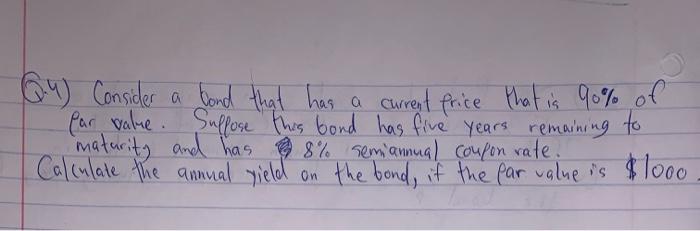 Q.4) Consider a bond that has a current price that is 90% of
par value. Suppose this bond has five years remaining to
maturity and has 8% semiannual coupon rate.
Calculate the annual yield on the bond, if the par value is $1000.